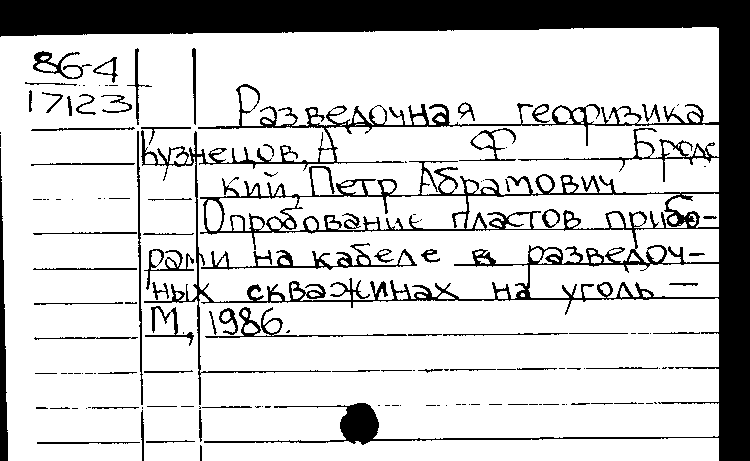 86-4
17123
Разведочная геофизика
Кузнецов, А Ф , Бродс
кий, Петр Абрамович
Опробование пластов прибо-
рами на кабеле в разведоч-
ных скважинах на уголь. —
М., 1986.